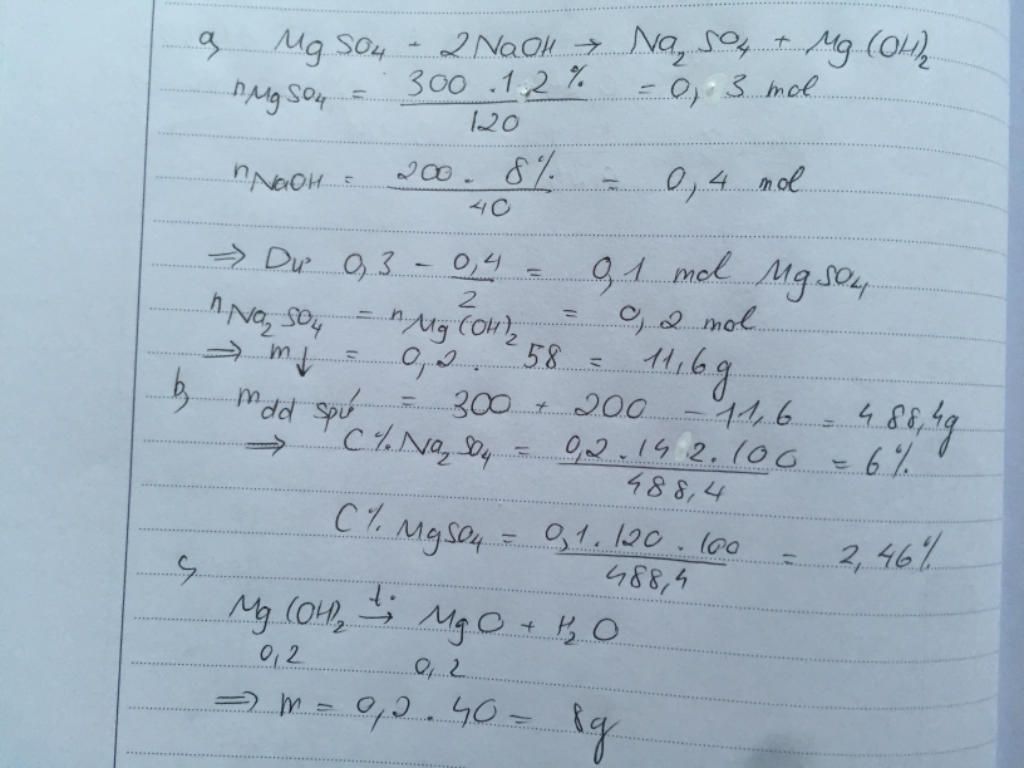 a, MgSO4 - 2NaOH → Na2SO4 + Mg(OH)2
nMgSO4 = 300 . 1 2 % / 120 = 0, 3 mol
nNaOH = 200 . 8% / 40 = 0,4 mol
⇒ Dư 0,3 - 0,4 / 2 = 0,1 mol MgSO4
nNa2SO4 = nMg(OH)2 = 0,2 mol
⇒ m↓ = 0,2 . 58 = 11,6g
b, mdd spư = 300 + 200 - 11,6 = 488,4g
⇒ C% Na2SO4 = 0,2 . 142 . 100 / 488,4 = 6%
C% MgSO4 = 0,1 . 120 . 100 / 488,4 = 2,46%
c,
Mg(OH)2 t° → MgO + H2O
0,2 0,2
⇒ m = 0,2 . 40 = 8g